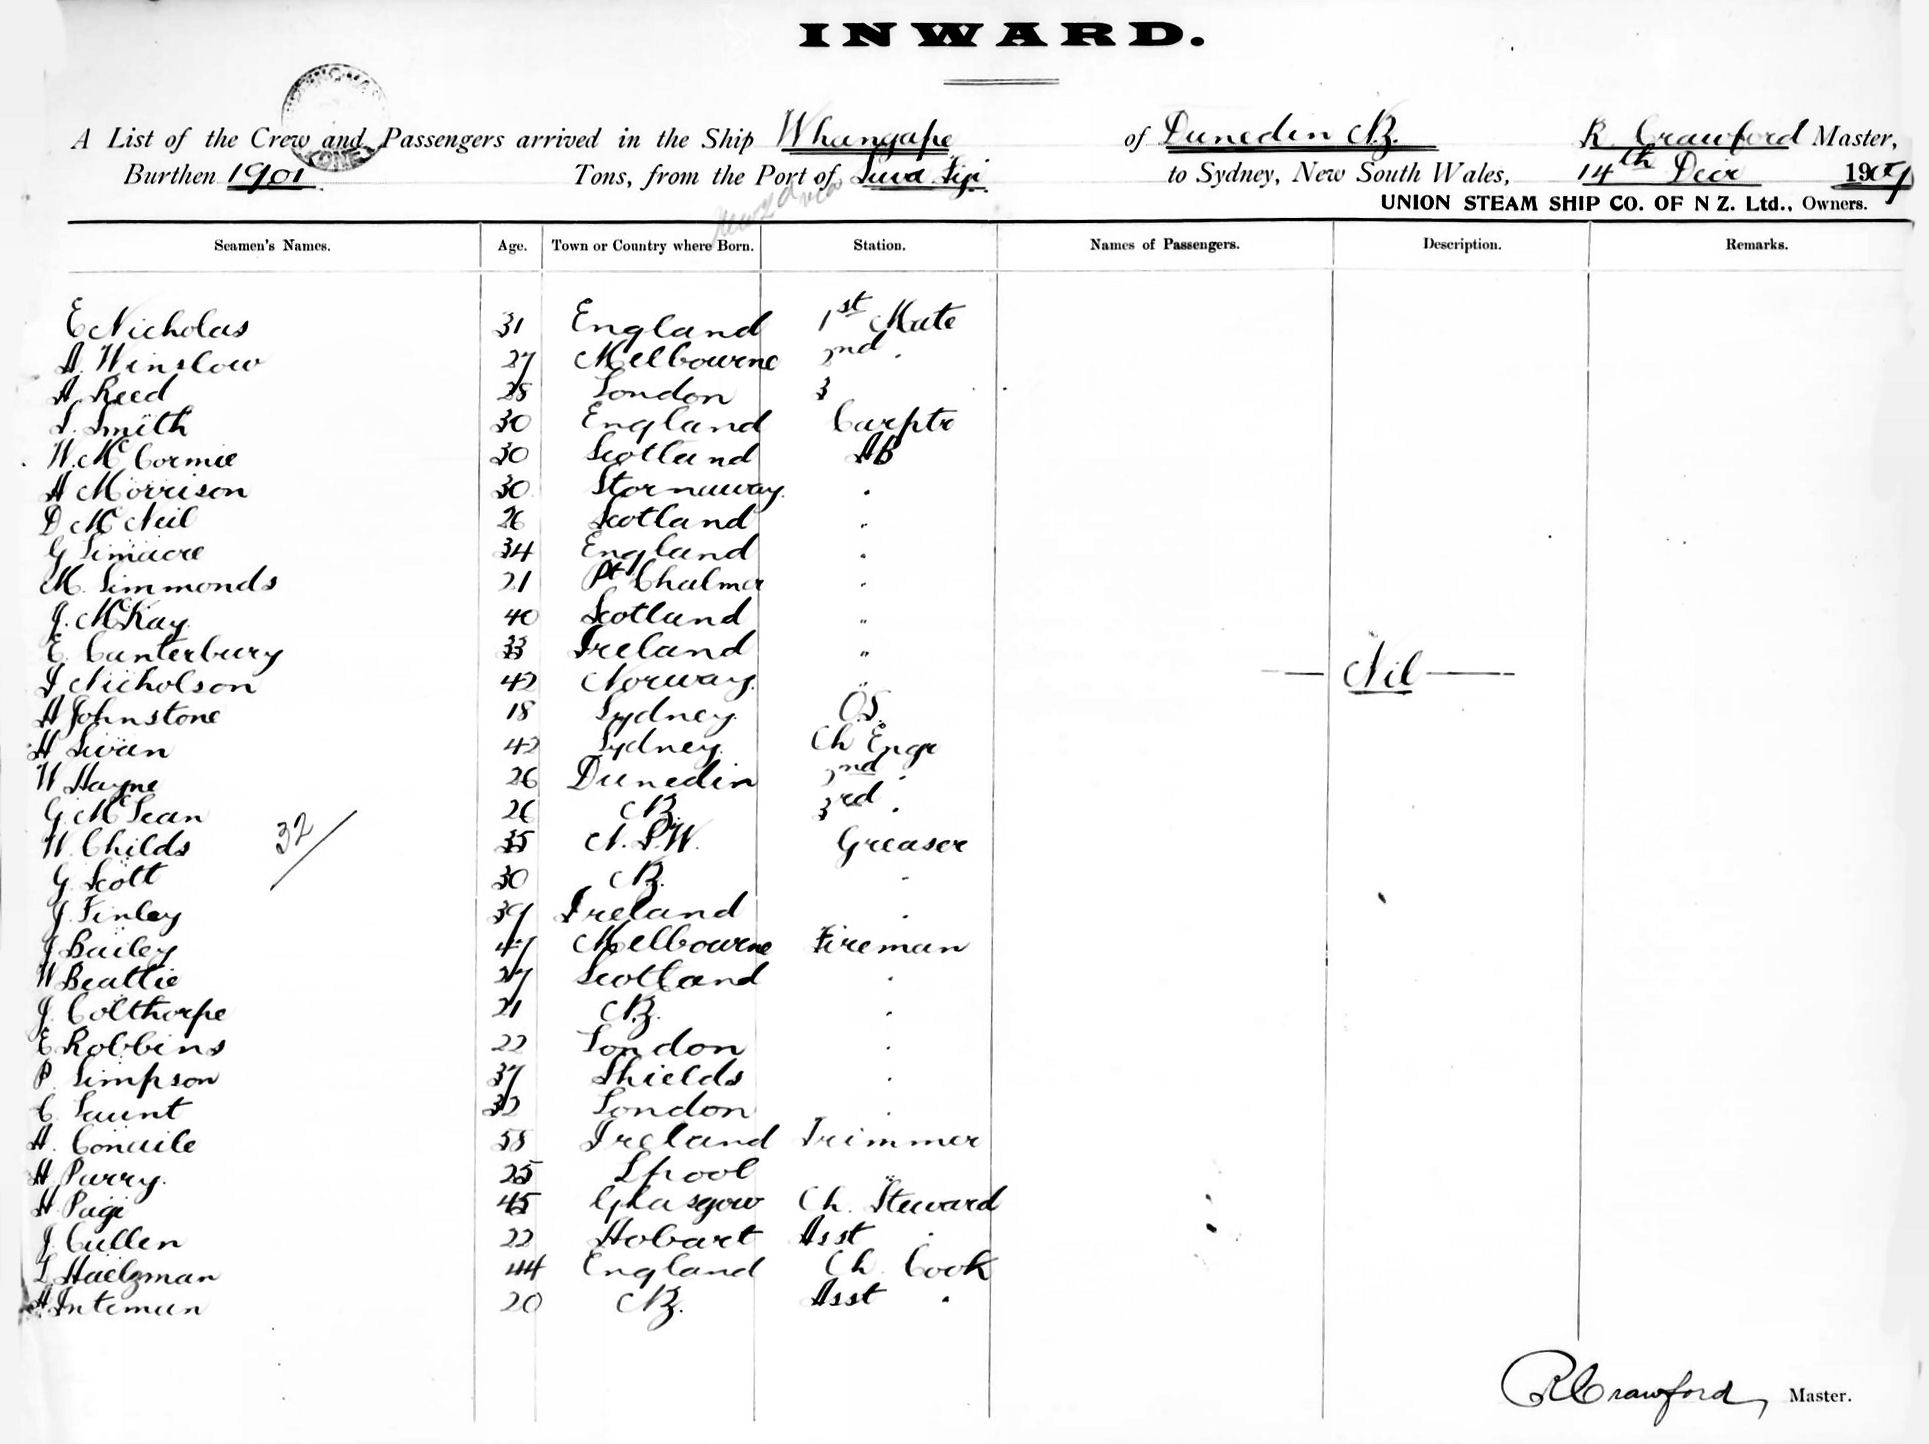 INWARD.
A List of the Crew and Passengers arrived in the Ship Whangape of Dunedin N.Z. R Crawford Master,
Burthen 1901 Tons, from the Port of Suva Fiji to Sydney, New South Wales, 14th Decr 190
UNION STEAM SHIP CO. OF N Z. Ltd., Owners.
Seamen's Names. Age. Town or Country where Born. Station. Names of Passengers. Description. Remarks.
E Nicholas 31 England 1st Mate
A. Winslow 27 Melbourne 2nd "
A Reed 28 London 3
S. Smith 30 England Carptr
W. McCormie 30 Scotland AB
A Morrison 30 Stornaway "
D McNeil 26 Scotland "
G Simacre 34 England "
M. Simmonds 21 Pt Chalmer "
J. McKay 40 Scotland "
E. Canterbury 33 Ireland "
Nicholson 42 Norway "
Nil
A Johnstone 18 Sydney O.S.
H Swan 42 Sydney Ch Engr
W Hayne 26 Dunedin 2nd "
G. McLean 26 N.Z. 3rd "
32
W. Childs 35 N.S.W. Greaser
G. Scott 30 N.Z. "
J. Finley 39 Ireland "
J Bailey 47 Melbourne Fireman
W Beattie 27 Scotland "
J. Colthorpe 21 N.Z. "
E Robbins 22 London "
P. Simpson 37 Shields "
C. Saunt 32 London "
A. Conaile 55 Ireland Trimmer
H Parry. 25 Lpool "
H Page 45 Glasgow Ch. Steward
J. Cullen 22 Hobart Asst "
L Haelzman 44 England Ch. Cook
A Inteman 20 N.Z. Asst "
R Crawford Master.